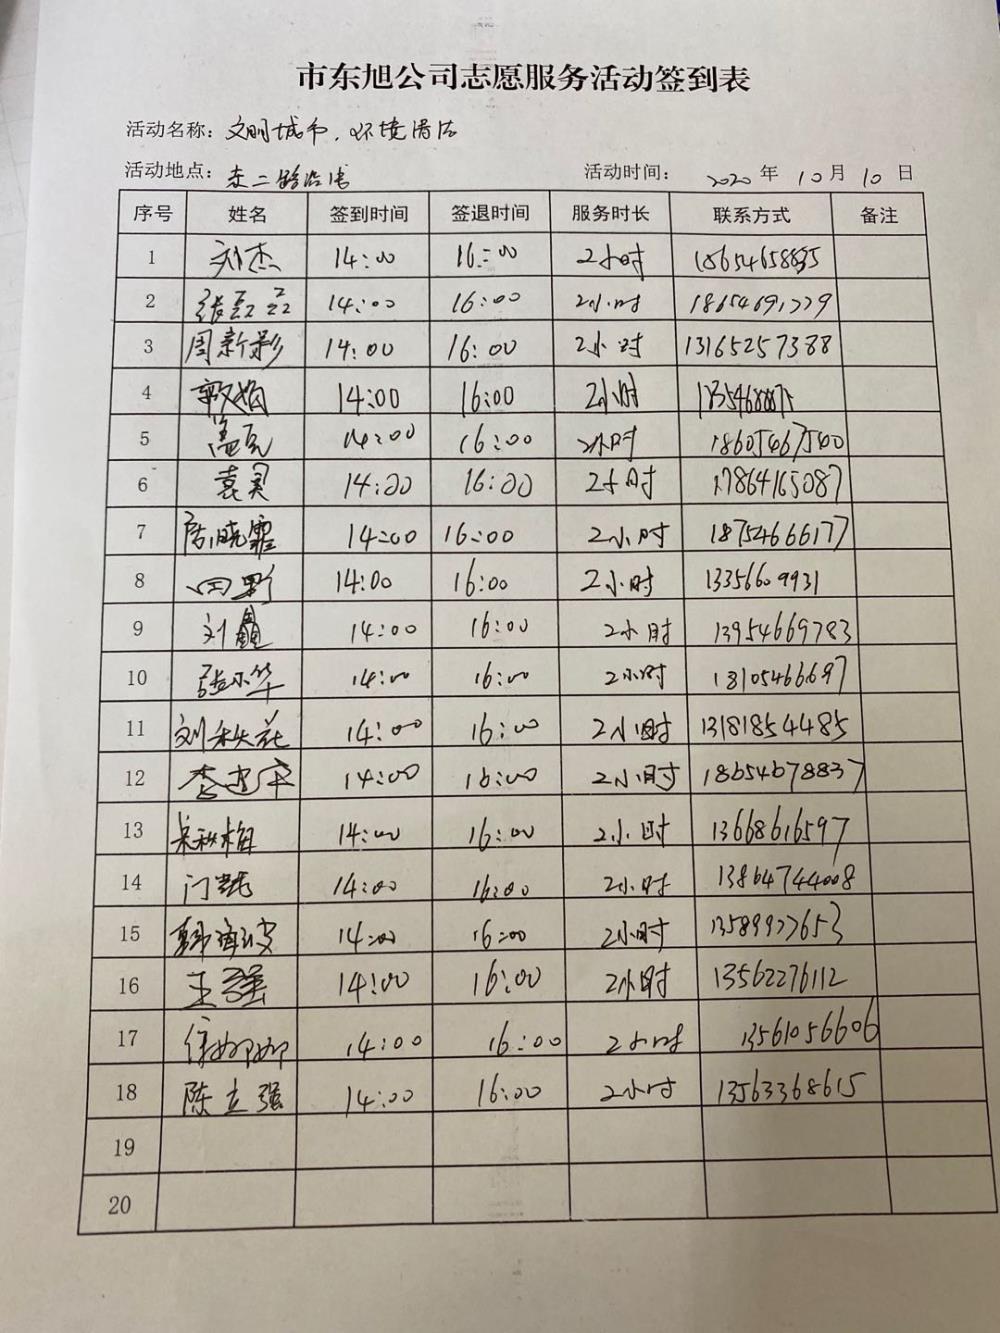 市东旭公司志愿服务活动签到表
活动名称：文明城市，环境清洁
活动地点：东二路沿街 活动时间：2020 年 10 月 10 日
序号 姓名 签到时间 签退时间 服务时长 联系方式 备注
1 刘杰 14:00 16:00 2小时
2 张磊磊 14:00 16:00 2小时 18654691779
3 周新彩 14:00 16:00 2小时 13165257388
4 14:00 16:00 2小时
5 盖克 14:00 16:00 2小时 18605467540
6 袁昊 14:00 16:00 2小时 17864165087
7 晓霏 14:00 16:00 2小时 18754666177
8 田野 14:00 16:00 2小时 13356609931
9 刘鑫 14:00 16:00 2小时 13954669783
10 张小华 14:00 16:00 2小时 13105466697
11 刘秋花 14:00 16:00 2小时 13181854485
12 李建军 14:00 16:00 2小时 18654678837
13 秋梅 14:00 16:00 2小时 13668616597
14 门 14:00 16:00 2小时 13864744008
15 郭海波 14:00 16:00 2小时 13589977653
16 王强 14:00 16:00 2小时 13562276112
17 徐娜娜 14:00 16:00 2小时 13561056606
18 陈立强 14:00 16:00 2小时 13563368615
19
20